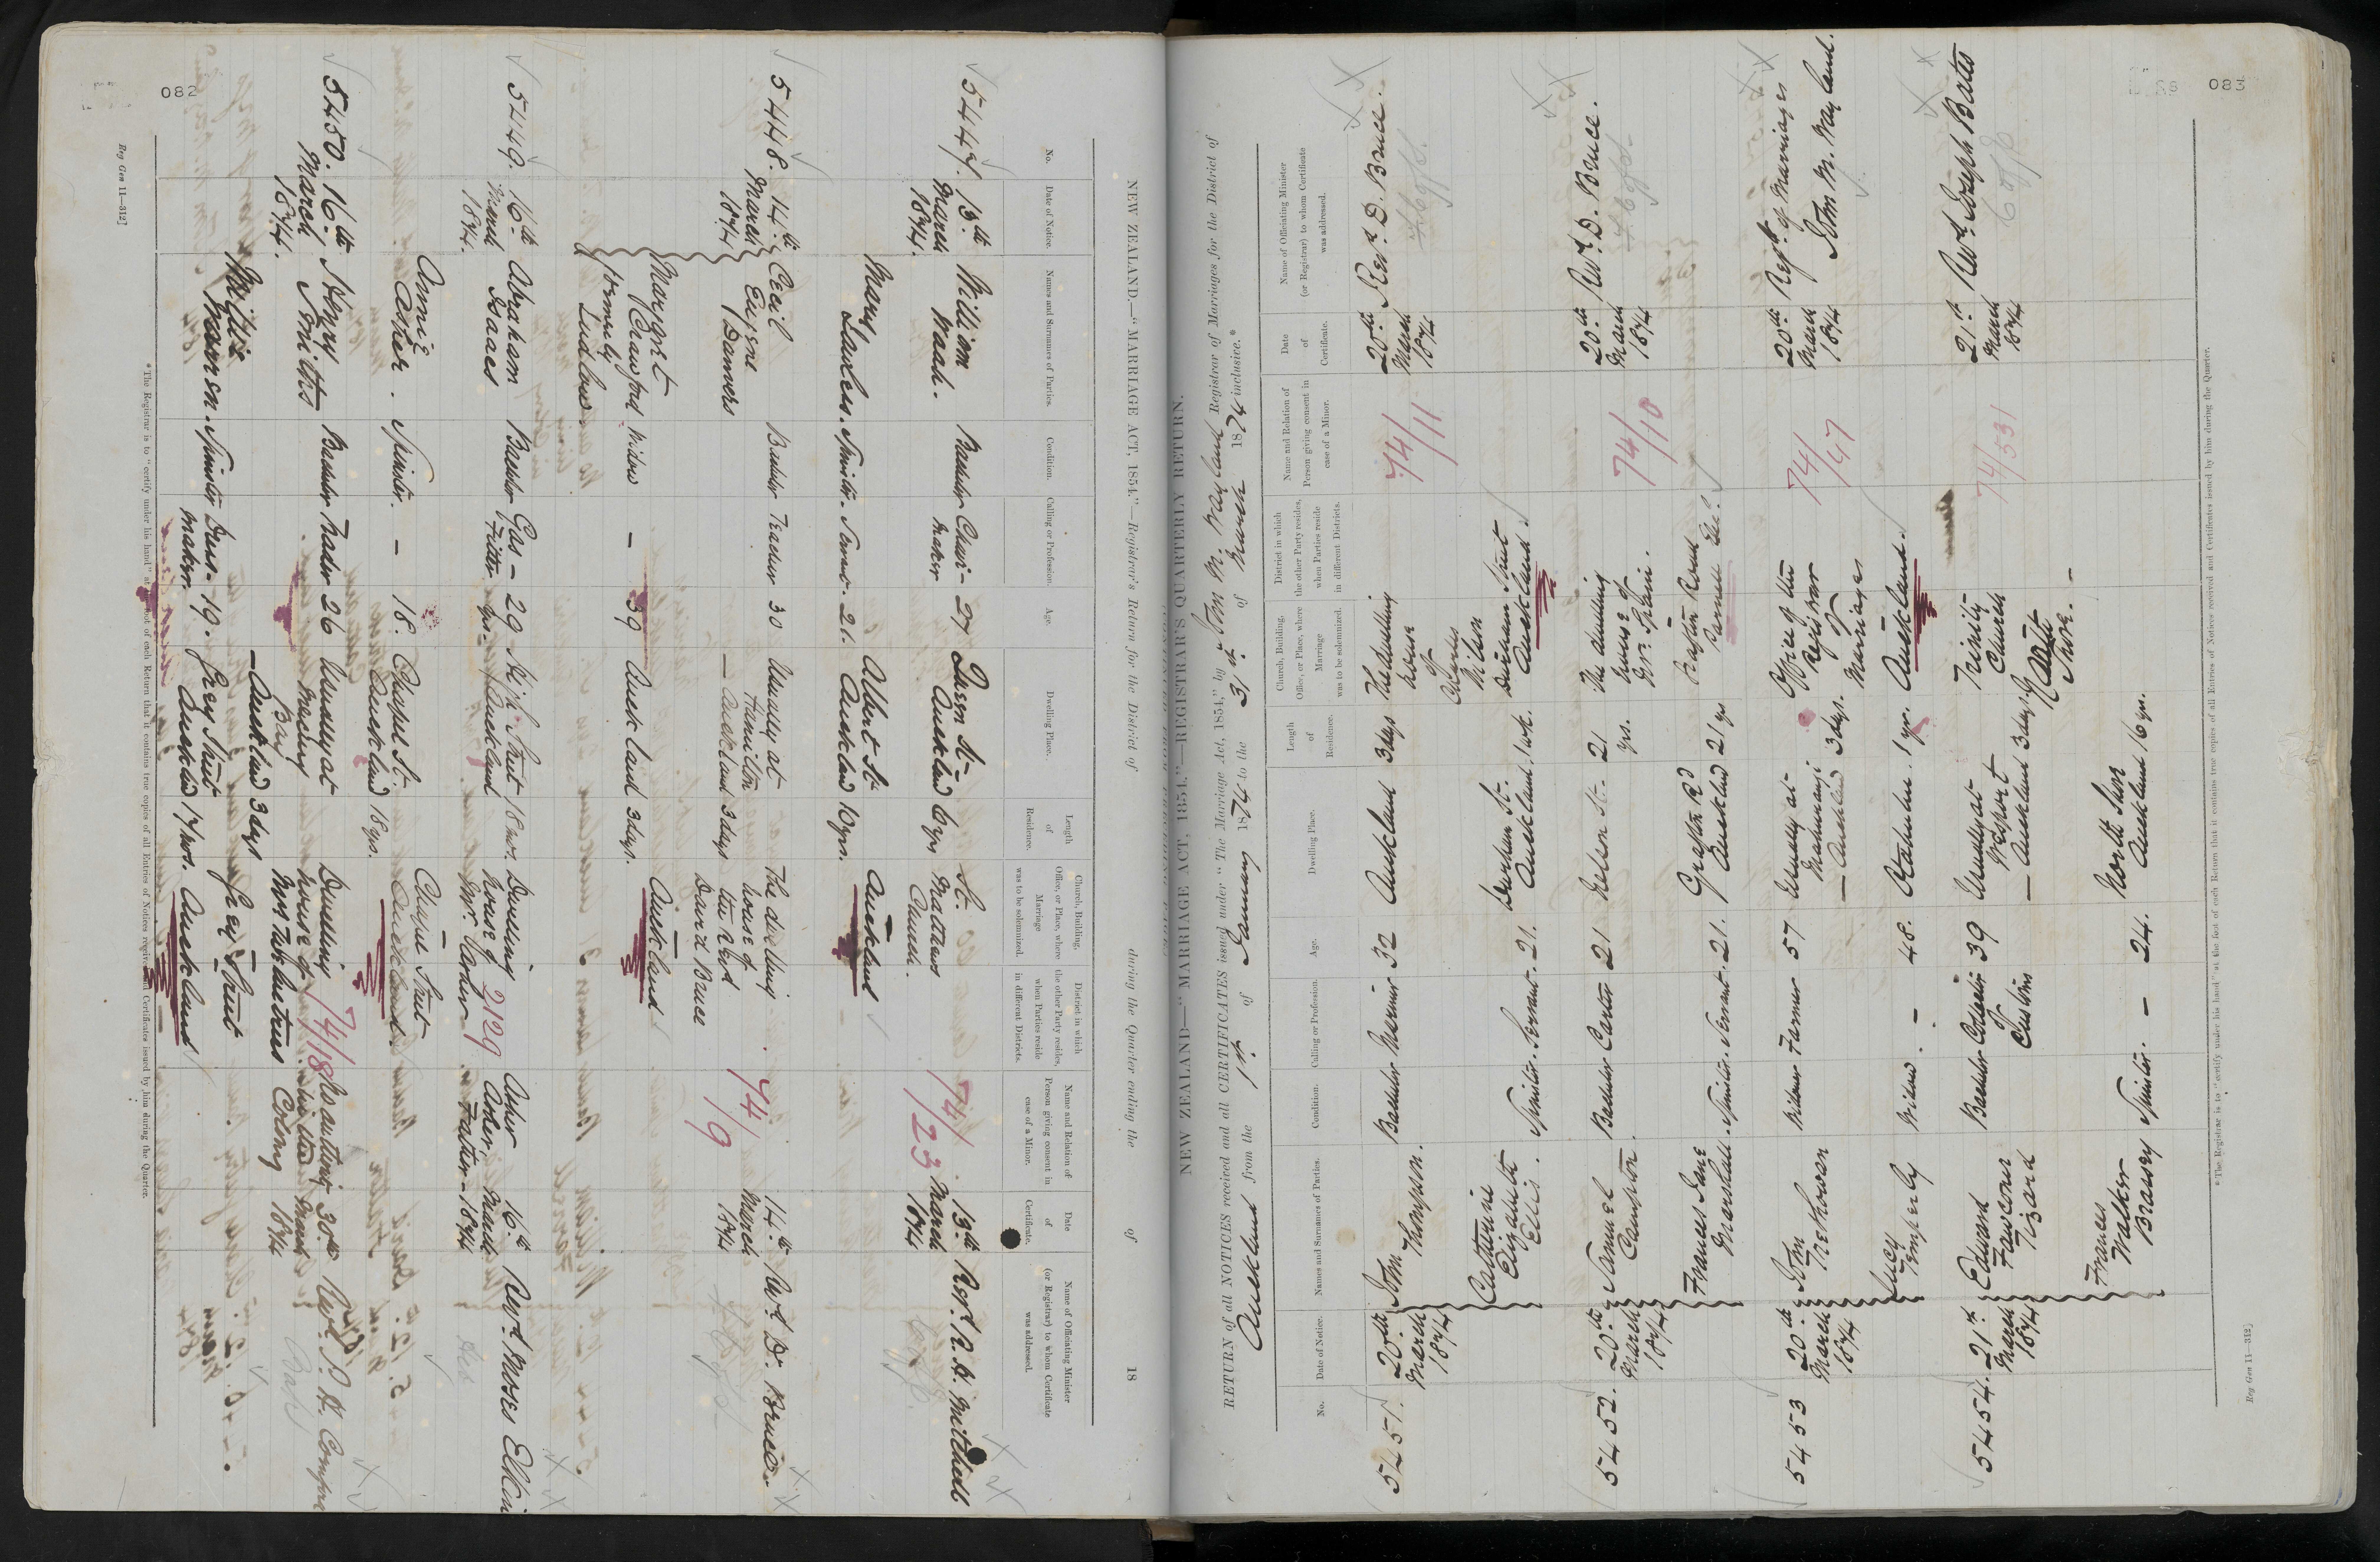 082
NEW ZEALAND.—"MARRIAGE ACT, 1854."—Registrar's Return for the District of during the Quarter ending the of 18
No.
Date of Notice.
Names and Surnames of Parties.
Condition.
Calling or Profession.
Age.
Dwelling Place.
Length of Residence.
Church, Building, Office, or Place, where Marriage was to be solemnized.
District in which the other Party resides, when Parties reside in different Districts.
Name and Relation of Person giving consent in case of a Minor.
Date of Certificate.
Name of Officiating Minister (or Registrar) to whom Certificate was addressed.
5447. 13th March 1874.
William
Bachelor
Chair-maker
27
Queen St. Auckland
6 yrs
St. Matthews Church.
74/23
13th March 1874
Revd. R. H. Mitchell
Mary Lawless.
Spinster.
21.
Albert St. Auckland
10 yrs.
Auckland
5448. 14th March 1874
Cecil Eugene Danvers
Bachelor
Teacher
30
Usually at Hamilton
— Auckland
3 days
The dwelling house of the Revd David Bruce
74/9
14th March 1874
Revd. D. Bruce.
Margaret Crawford
formerly Ludlow
Widow
—
39
Auckland
3 days.
Auckland
5449. 16th March 1874.
Abraham Isaacs
Bachelor
Gas-Fitter
29 yrs.
High Street Auckland
18 mos.
Dwelling house of Mr.
2129
Asher Asher, Father
16th March 1874
Revd Moses Elkin
Annie Asher.
Spinster.
—
18.
Chapel St. Auckland
18 yrs.
Chapel Street
Auckland
5450. 16th March 1874.
Henry Smith
Bachelor
Trader
26
Usually at Mercury Bay
— Auckland
3 days
Dwelling house of Mrs
74/18
30th March 1874
Spinster
Dress-maker.
19.
Grey Street Auckland
17 mos.
Grey Street
Auckland
* The Registrar is to "certify under his hand" at the foot of each Return that it contains true copies of all Entries of Notices received and Certificates issued by him during the Quarter.
Reg Gen 11—312]
083
NEW ZEALAND—"MARRIAGE ACT, 1854."—REGISTRAR'S QUARTERLY RETURN.
RETURN of all NOTICES received and all CERTIFICATES issued under "The Marriage Act, 1854," by John M. Wayland Registrar of Marriages for the District of
Auckland from the 1st of January 1874 to the 31st of March 1874 inclusive.*
No.
Date of Notice.
Names and Surnames of Parties.
Condition.
Calling or Profession.
Age.
Dwelling Place.
Length of Residence.
Church, Building, Office, or Place, where Marriage was to be solemnized.
District in which the other Party resides, when Parties reside in different Districts.
Name and Relation of Person giving consent in case of a Minor.
Date of Certificate.
Name of Officiating Minister (or Registrar) to whom Certificate was addressed.
5451.
20th March 1874
John Thompson.
Bachelor
Mariner
32
Auckland
3 days
The dwelling house of Charles Wilson Durham Street Auckland.
74/11
20th March 1874
Revd. D. Bruce.
Catherine Elizabeth Ellis.
Spinster.
Servant.
21.
Durham St. Auckland.
1 wk.
5452.
20th March 1874
Samuel Campton.
Bachelor
Carter
21
Nelson St.
21 yrs.
The dwelling house of Mr. Spain. Grafton Road
74/10
20th March 1874
Revd. D. Bruce.
Frances Jane Marshall.
Spinster.
Servant.
21.
Grafton Rd Auckland
21 yrs
5453
20th March 1874
John Trethowen
Widower
Farmer
57
Usually at Mahurangi
— Auckland
3 days.
Office of the Registrar of Marriages
Auckland.
74/47
20th March 1874
Regr. of Marriages
John M. Wayland.
Lucy Temperly
Widow.
—
48.
Otahuhu.
1 yr.
5454.
21st March 1874
Edward Fawcour Tizard
Bachelor
Collector of Customs
39
Usually at Westport
— Auckland
3 days.
Trinity Church North Shore.
74/531
21st March 1874
Revd. Joseph Bates
Frances Walker Brassey
Spinster.
—
24.
North Shore Auckland
16 yrs.
* The Registrar is to "certify under his hand" at the foot of each Return that it contains true copies of all Entries of Notices received and Certificates issued by him during the Quarter.
Reg Gen 11—312]